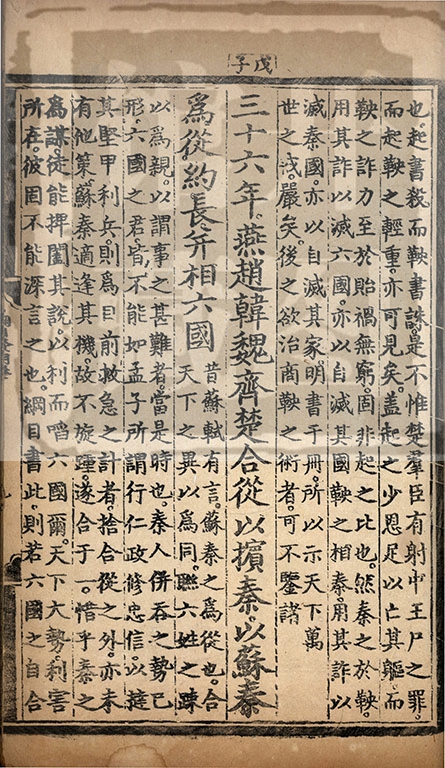 戊子
也起書殺而鞅書誅。是不惟楚羣臣有射中王尸之罪。
而起鞅之輕重。亦可見矣。蓋起之少恩足以亡其軀。而
鞅之詐力至於貽禍無窮。固非起之比也。然秦之於鞅。
用其詐以滅六國。亦以自滅其國。鞅之相秦。用其詐以
滅秦國。亦以自滅其家。明書于冊。所以示天下萬
世之誡。嚴矣。後之欲治商鞅之術者。可不鑒諸
三十六年。燕趙韓魏齊楚合從以擯秦。以蘇秦
為從約長。并相六國
昔蘇軾有言。蘇秦之為從也。合
天下之異以為同。聯六姓之踈
以為親。以謂事之甚難者。當是時也。秦人併吞之勢已
形。六國之君。皆不能如孟子所謂行仁政修忠信。以撻
其堅甲利兵。則為目前救急之計者。捨合從之外。亦未
有他策。蘇秦適逢其機。故不旋踵。遂合于一。惜乎秦之
為謀徒能捭闔其說。以利而啗六國爾。天下大勢利害
所在。彼固不能深言之也。綱目書此。則若六國之自合